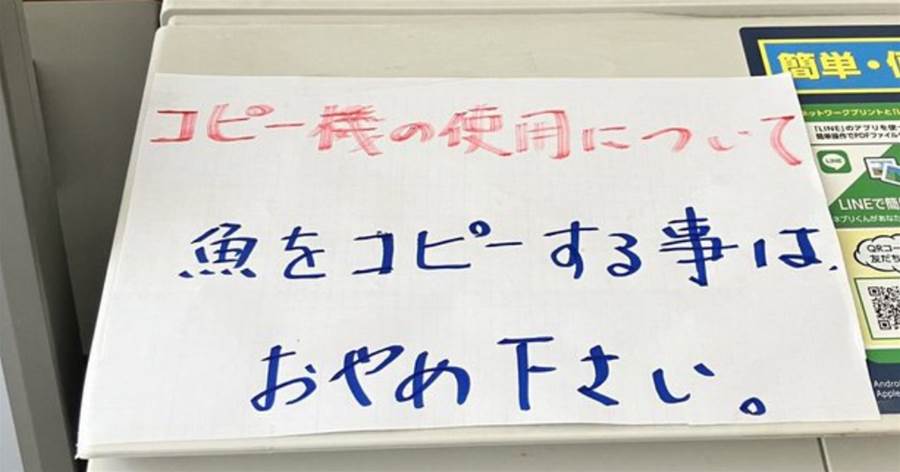 コピー機の使用について
魚をコピーする事は、
おやめ下さい。
簡単・
ネットワークプリントと「L
「LINE」のアプリを使っ
簡単操作でPDFファイル
LINE
LINEで簡
ネプリくんがあなた
QRコー
友だち
Android
Apple